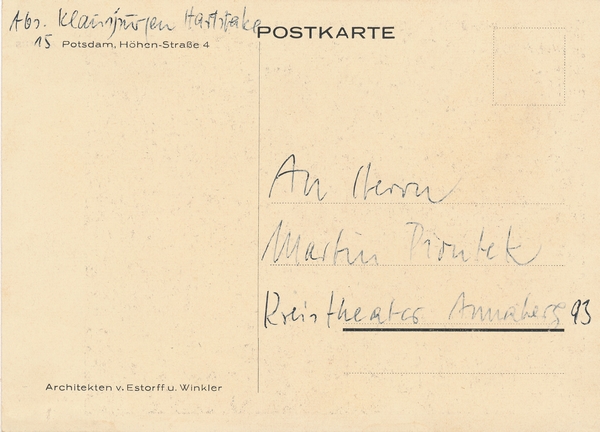 Abs. Klausjürgen Hartstake
POSTKARTE
15 Potsdam, Höhen-Straße 4
An Herrn
Martin Piontek
Kreistheater Annaberg 93
Architekten v. Estorff u. Winkler